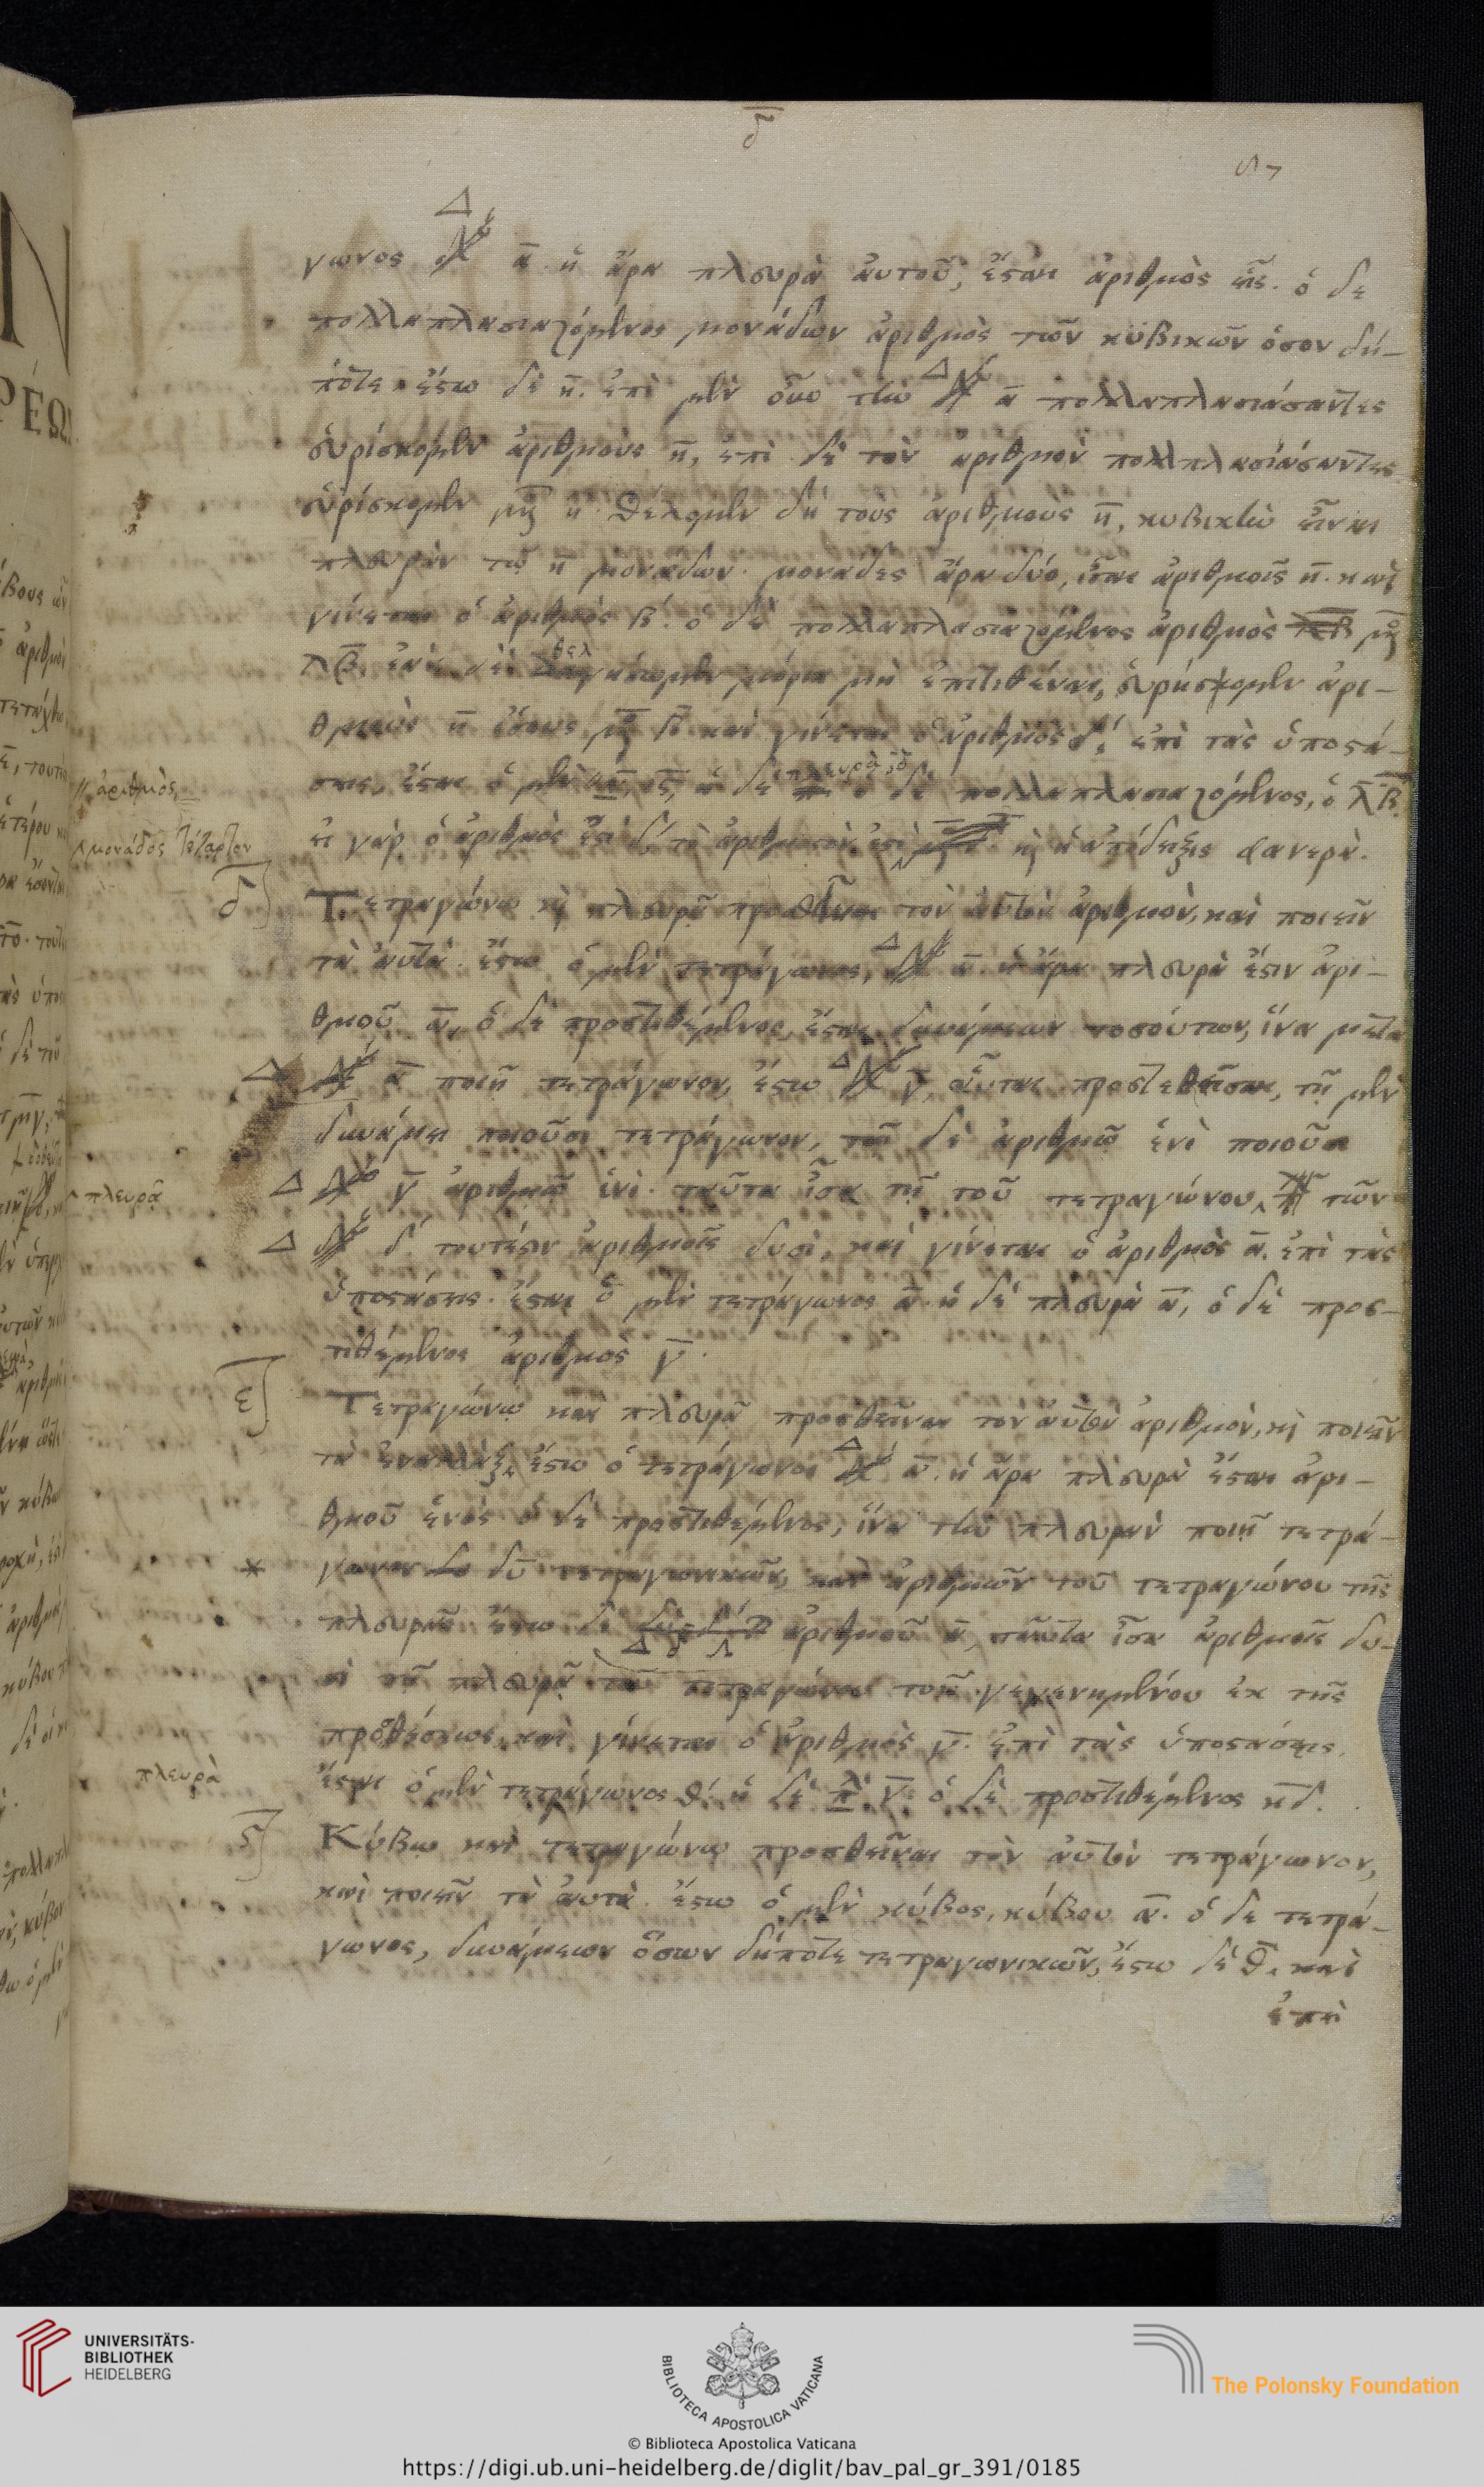 δ
γωνος Δυ α. ἡ ἄρα πλευρὰ αὐτοῦ, ἔσται ἀριθμὸς εἷς. ὁ δε
πολλαπλασιαζόμενος μονάδων ἀριθμὸς τῶν κυβικῶν ὅσον δή-
ποτε. ἔστω δὲ η. ἐπὶ μὲν οὖν τὴν Δυ α πολλαπλασιάσαντες
εὑρίσκομεν ἀριθμοὺς η, ἐπὶ δὲ τὸν ἀριθμὸν πολλπλασιάσαντες
εὑρίσκομεν μο η. θέλομεν δὴ τοὺς ἀριθμοὺς η, κυβικὴν εἶναι
πλευρὰν τῶ η μονάδων. μονάδες ἄρα δύο, ἴσαι ἀριθμοῖς η. καὶ
γίνεται ὁ ἀριθμὸς ὁ δὲ πολλαπλασιαζόμενος ἀριθμὸς μο
λβ. ἐὰν δὲ θελήσωμεν μόρια μὴ ἐπιτιθέναι, εὑρήσομεν ἀρι-
θμοὺς η ἴσους μο β καὶ γίνεται ὁ ἀριθμὸς δ. ἐπὶ τὰς ὑποστά-
σεις, ἔσται ὁ μὲν ἡ δε πλευρὰ ὁ δὲ πολλαπλασιαζόμενος, ὁ λβ.
// ἀριθμὸς
εἰ γάρ ὁ ἀριθμὸς ἐστὶ δ, τὸ ἀριθμοστὸν ἐστὶ κὶ ἡ ἀπόδειξις φανερὰ.
μονάδος τέταρτον
δ Τετραγώνω κὶ πλευρᾷ προσθεῖναι τὸν αὐτὸν ἀριθμὸν, καὶ ποιεῖν
τὰ αὐτά. ἔστω ὁ μὲν τετράγωνος, Δυ α. ἡ ἄρα πλευρὰ ἔστιν ἀρι-
θμοῦ α, ὁ δὲ προστιθέμενος ἔσται δυνάμεων τοσούτων, ἵνα μετὰ
Δυ α ποιῇ τετράγωνον, ἔστω Δυ γ, αὗται προστεθεῖσαι, τῇ μὲν
δυνάμει ποιοῦσι τετράγωνον, τῷ δὲ ἀριθμῷ ἑνὶ ποιοῦσι
Δυ γ ἀριθμῷ ἑνὶ. ταῦτα ἴσα τῇ τοῦ τετραγώνου τῶν
πλευρᾷ
Δυ δ. τουτέστιν ἀριθμοῖς δυσὶ, καὶ γίνεται ὁ ἀριθμὸς α. ἐπὶ τὰς
ὑποστάσεις. ἔσται ὁ μὲν τετράγωνος α. ἡ δὲ πλευρὰ α, ὁ δὲ προσ-
τιθέμενος ἀριθμὸς γ.
ε Τετραγώνῳ καὶ πλευρᾷ προσθεῖναι τὸν αὐτὸν ἀριθμὸν, κὶ ποιεῖν
τὰ ἐναλλάξ, ἔστω ὁ τετράγωνος Δυ α. ἡ ἄρα πλευρὰ ἔσται ἀρι-
θμοῦ ἑνὸς ὁ δὲ προστιθέμενος, ἵνα τὴν πλευρὰν ποιῇ τετρά-
* γωνον δυ τετραγωνικῶν, καὶ ἀριθμῶν τοῦ τετραγώνου τῆς
πλευρᾶς ἔστω δὲ ἀριθμοῦ α, πάντα ἴσα ἀριθμοῖς δυ-
σὶ τῇ πλευρᾷ τοῦ τετραγώνου τοῦ γεγενημένου ἐκ τῆς
προσθέσεως, καὶ γίνεται ὁ ἀριθμὸς γ. ἐπὶ τὰς ὑποστάσεις.
πλευρὰ
ἔσται ὁ μὲν τετράγωνος θ. ἡ δὲ γ. ὁ δὲ προστιθέμενος κδ.
ς Κύβω καὶ τετραγώνῳ προσθεῖναι τὸν αὐτὸν τετράγωνον,
καὶ ποιεῖν τὰ αὐτὰ. ἔστω ὁ μὲν κύβος, κύβου α. ὁ δε τετρά-
γωνος, δυνάμεων ὅσων δήποτε τετραγωνικῶν, ἔστω δὲ θ. καὶ
ἐπεὶ
UNIVERSITÄTS-
BIBLIOTHEK
HEIDELBERG
BIBLIOTECA APOSTOLICA VATICANA
The Polonsky Foundation
© Biblioteca Apostolica Vaticana
https://digi.ub.uni-heidelberg.de/diglit/bav_pal_gr_391/0185